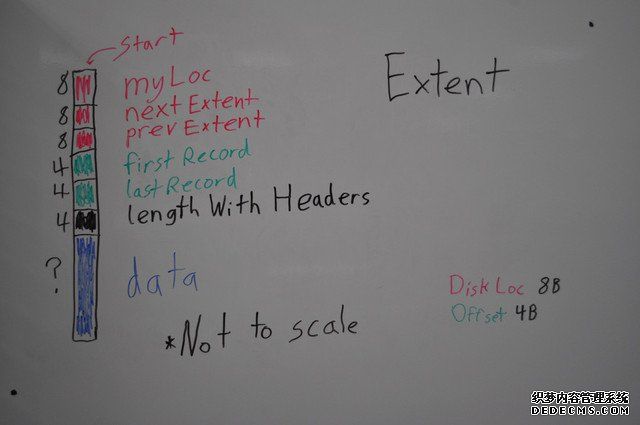 Start
Extent
8 myLoc
8 next Extent
8 prev Extent
4 first Record
4 last Record
4 length With Headers
? data
Disk Loc 8B
Offset 4B
*Not to scale
织梦内容管理系统
DEDECMS.COM